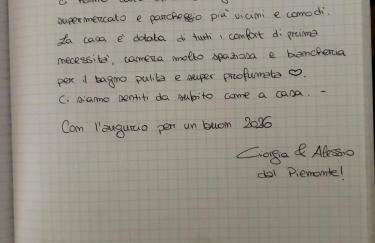 supermercato e parcheggio più vicini e comodi.
La casa è dotata di tutti i comfort di prima
necessità, camera molto spaziosa e biancheria
per il bagno pulita e super profumata ♡.
Ci siamo sentiti da subito come a casa. -
Con l'augurio per un buon 2026
Giorgia & Alessio
dal Piemonte!